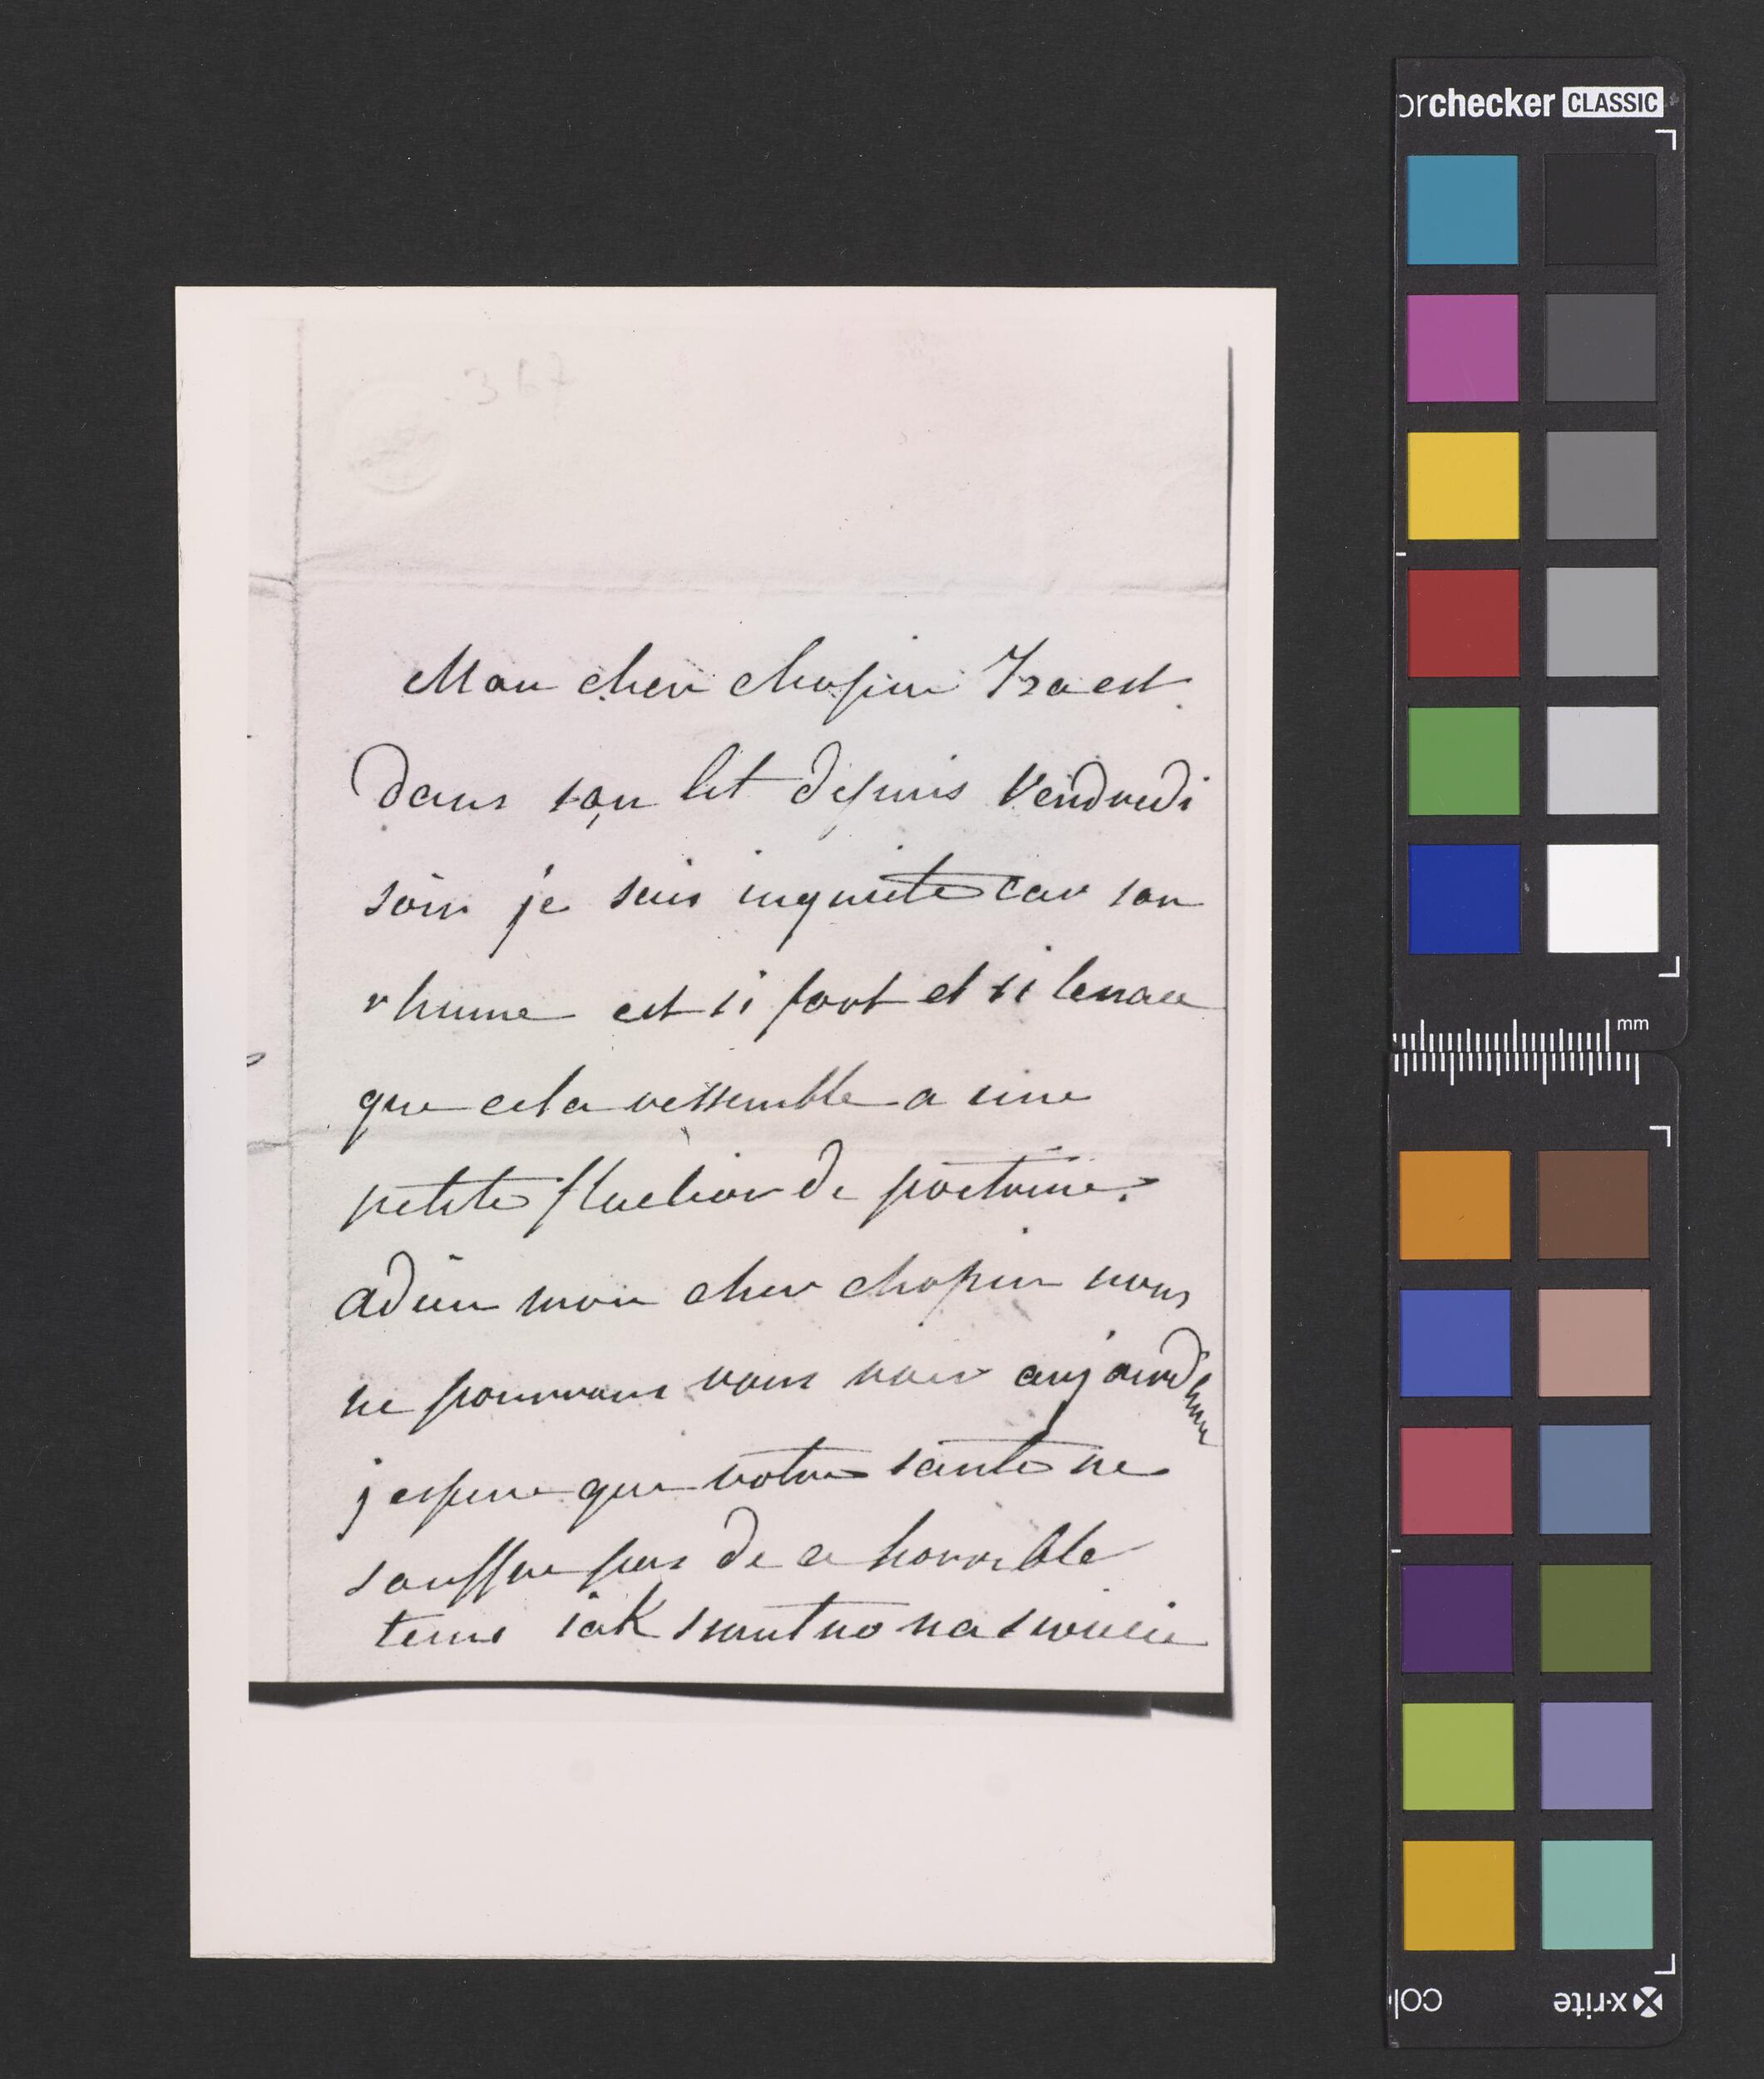 orchecker CLASSIC
367
Mon cher chopin Iza est
dans son lit depuis Vendredi
soir je suis inquiete car son
rhume est si fort et si tenace
que cela ressemble a une
petite fluction de poitrine.
adieu mon cher chopin nous
ne pourrons vous voir aujourdhui
j espere que votre santé ne
souffre pas de ce horrible
tems iak smutno na swiecie
mm
col
x-rite